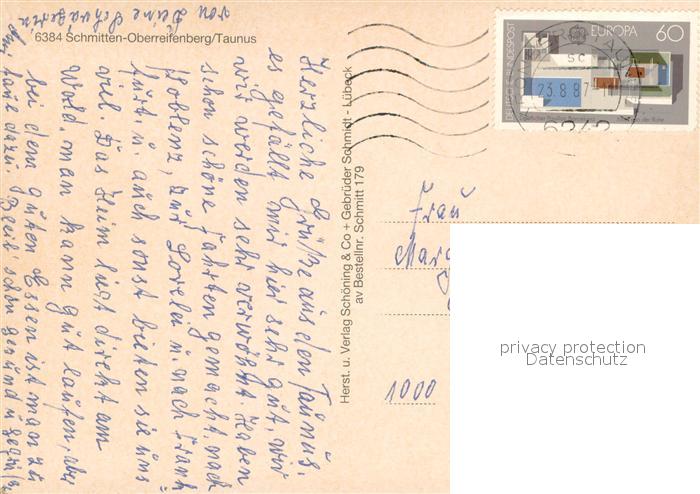 6384 Schmitten-Oberreifenberg/Taunus
Herzliche Grüße aus dem Taunus,
es gefällt mir hier sehr gut, wir
wir werden sehr verwöhnt. Haben
schon schöne Fahrten gemacht, nach
Koblenz, zur Lorelei u. nach Frank
furt u. auch sonst bieten sie uns
viel. Das Heim liegt direkt am
Wald, man kann gut laufen, aber
bei dem guten Essen ist man zu
faul dazu. Bleib' schön gesund u.
von Deine Schwägerin
Herst. u. Verlag Schöning & Co + Gebrüder Schmidt - Lübeck
av Bestellnr. Schmitt 179
DEUTSCHE BUNDESPOST
EUROPA
60
23.8.87
Frau
1000
privacy protection
Datenschutz